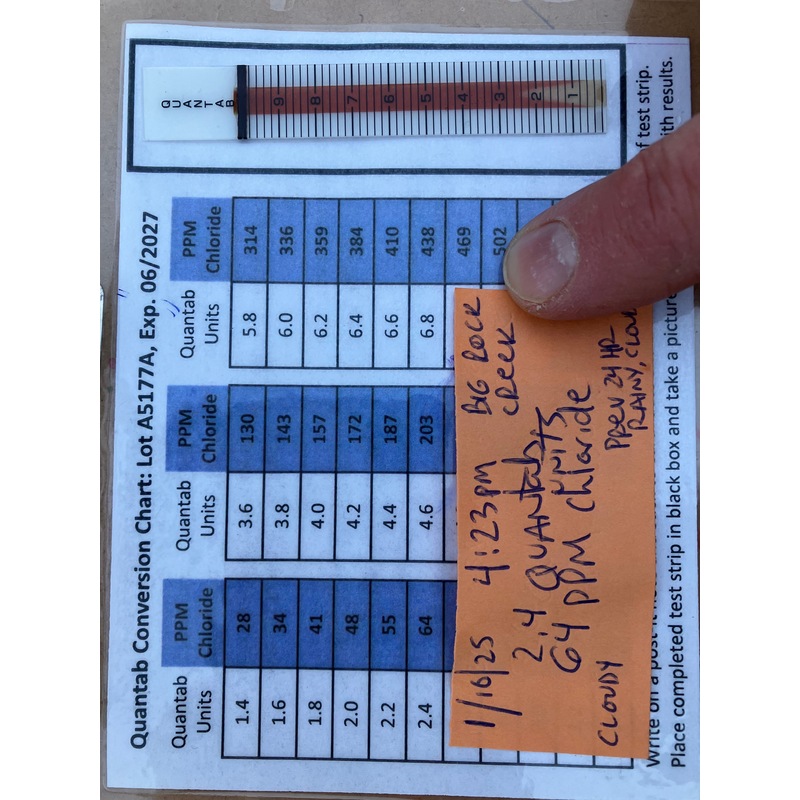 Quantab Conversion Chart: Lot A5177A, Exp. 06/2027
QUANTAB
9 8 7 6 5 4 3 2 1
Quantab Units PPM Chloride
1.4 28
1.6 34
1.8 41
2.0 48
2.2 55
2.4 64
Quantab Units PPM Chloride
3.6 130
3.8 143
4.0 157
4.2 172
4.4 187
4.6 203
Quantab Units PPM Chloride
5.8 314
6.0 336
6.2 359
6.4 384
6.6 410
6.8 438
469
502
1/10/25 4:23pm BIG ROCK CREEK
2.4 QUANTab UNITS
64 PPM chloride
CLOUDY
PREV 24 HR
RAINY,
Write on a post-it
of test strip.
Place completed test strip in black box and take a picture
with results.